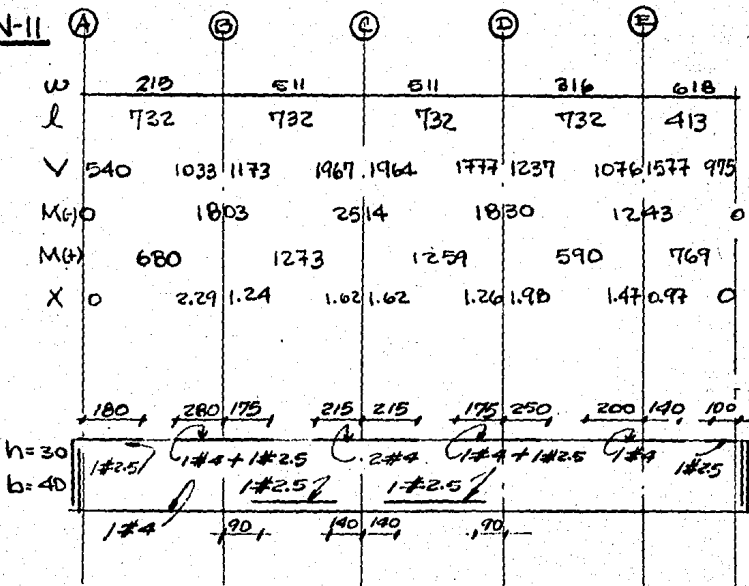 N-11 A B C D E
w 215 511 511 316 618
l 732 732 732 732 413
V 540 1033 1173 1967 1964 1777 1237 1076 1577 975
M(-) 0 1803 2514 1830 1243 0
M(+) 680 1273 1259 590 769
X 0 2.29 1.24 1.62 1.62 1.26 1.98 1.47 0.97 0
180 280 175 215 215 175 250 200 140 100
h=30
1#2.5 1#4+1#2.5 2#4 1#4+1#2.5 1#4 1#2.5
b=40 1#2.5 1#2.5
1#4 90 140 140 90